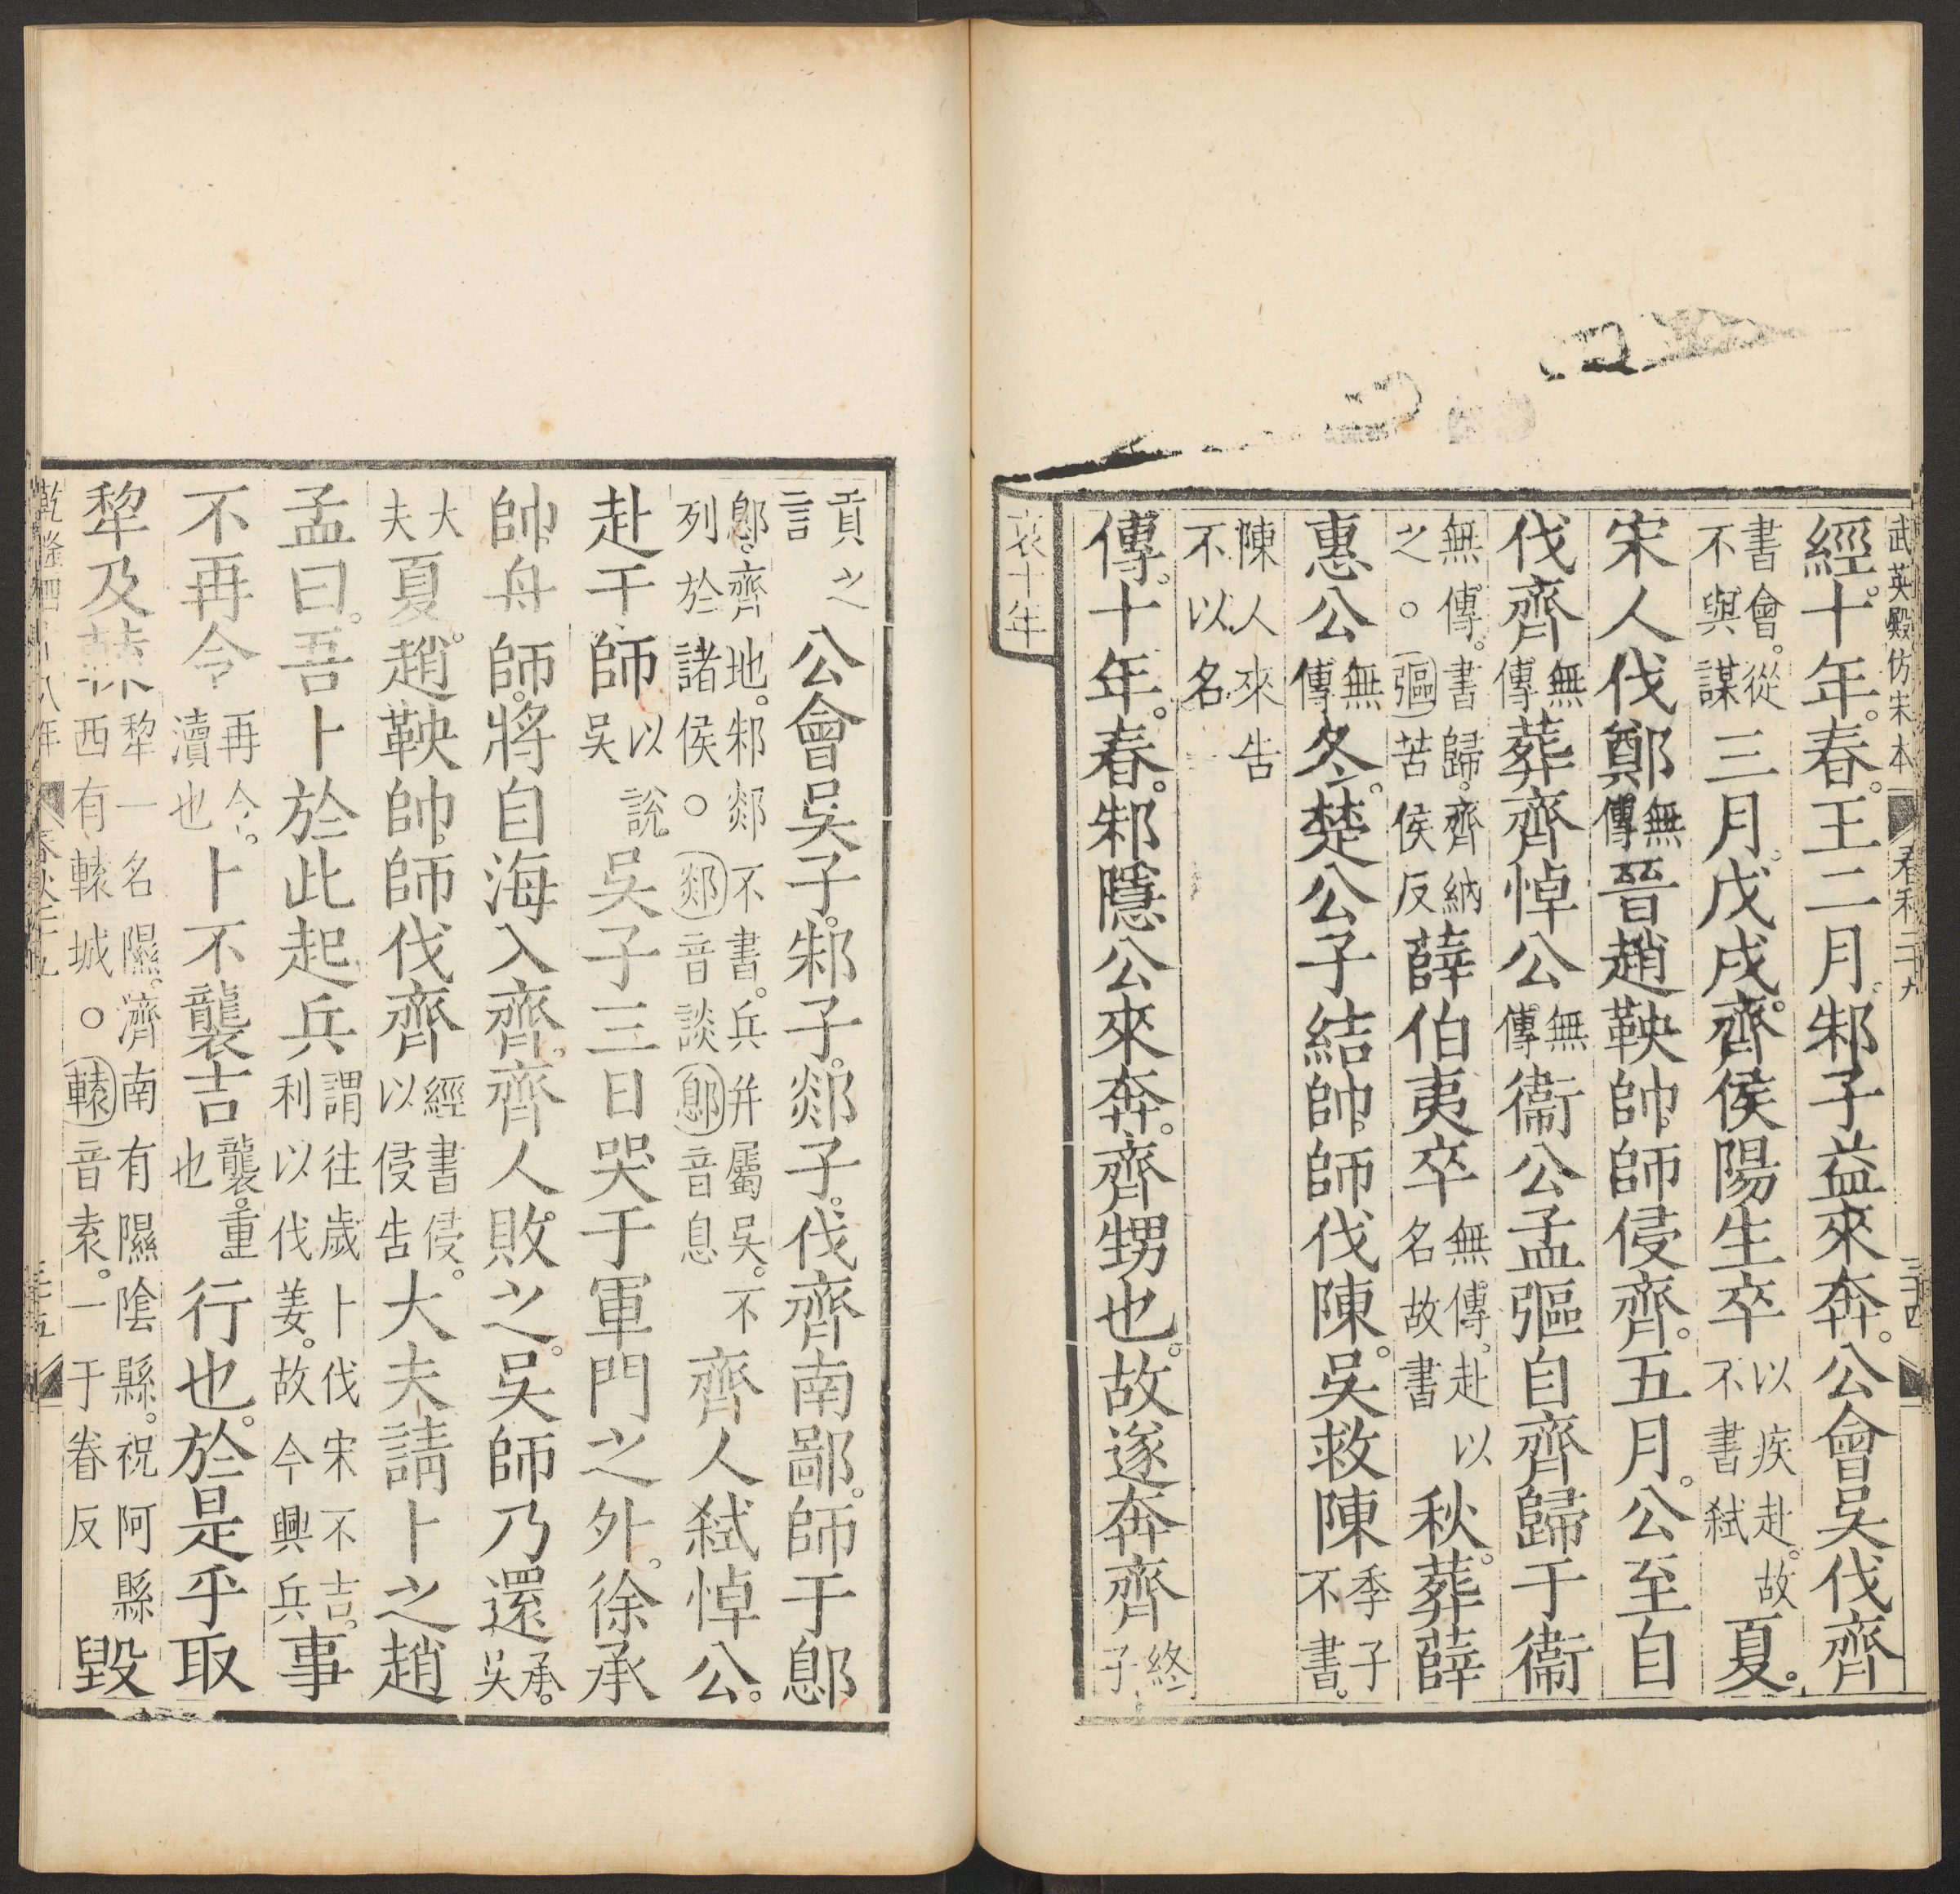 武英殿仿宋本
經十年。春。王二月。邾子益來奔。公會吳伐齊
書會。從不與謀三月。戊戌。齊侯陽生卒以疾赴。故不書弒夏。
宋人伐鄭無傳晉趙鞅帥師侵齊。五月。公至自
伐齊無傳葬齊悼公無傳衞公孟彄自齊歸于衞
無傳。書歸。齊納之○彄苦侯反薛伯夷卒無傳。赴以名故書秋。葬薛
惠公無傳冬。楚公子結帥師伐陳。吳救陳季子不書。
陳人來告不以名
傳。十年。春。邾隱公來奔。齊甥也。故遂奔齊終子
哀十年
貢之言公會吳子。邾子。郯子。伐齊南鄙。師于鄎
鄎。齊地。邾郯不書。兵幷屬吳。不列於諸侯○郯音談鄎音息齊人弒悼公。
赴于師以說吳吳子三日哭于軍門之外。徐承
帥舟師。將自海入齊。齊人敗之。吳師乃還承。吳
大夫夏。趙鞅帥師伐齊經書侵。以侵告大夫請卜之趙
孟曰。吾卜於此起兵謂往歲卜伐宋不吉。利以伐姜。故今興兵事
不再令再令。瀆也卜不襲吉襲。重也行也。於是乎取
犂及轅犂一名隰。濟南有隰陰縣。祝阿縣西有轅城○轅音袁。一于眷反毀